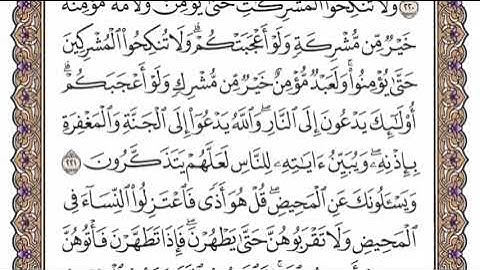 ﴿٢٢٠﴾ وَلَا تَنكِحُوا۟ ٱلْمُشْرِكَـٰتِ حَتَّىٰ يُؤْمِنَّ ۚ وَلَأَمَةٌ مُّؤْمِنَةٌ
خَيْرٌ مِّن مُّشْرِكَةٍ وَلَوْ أَعْجَبَتْكُمْ ۗ وَلَا تُنكِحُوا۟ ٱلْمُشْرِكِينَ
حَتَّىٰ يُؤْمِنُوا۟ ۚ وَلَعَبْدٌ مُّؤْمِنٌ خَيْرٌ مِّن مُّشْرِكٍ وَلَوْ أَعْجَبَكُمْ ۗ
أُو۟لَـٰٓئِكَ يَدْعُونَ إِلَى ٱلنَّارِ ۖ وَٱللَّهُ يَدْعُوٓا۟ إِلَى ٱلْجَنَّةِ وَٱلْمَغْفِرَةِ
بِإِذْنِهِۦ ۖ وَيُبَيِّنُ ءَايَـٰتِهِۦ لِلنَّاسِ لَعَلَّهُمْ يَتَذَكَّرُونَ ﴿٢٢١﴾
وَيَسْـَٔلُونَكَ عَنِ ٱلْمَحِيضِ ۖ قُلْ هُوَ أَذًى فَٱعْتَزِلُوا۟ ٱلنِّسَآءَ فِى
ٱلْمَحِيضِ ۖ وَلَا تَقْرَبُوهُنَّ حَتَّىٰ يَطْهُرْنَ ۖ فَإِذَا تَطَهَّرْنَ فَأْتُوهُنَّ